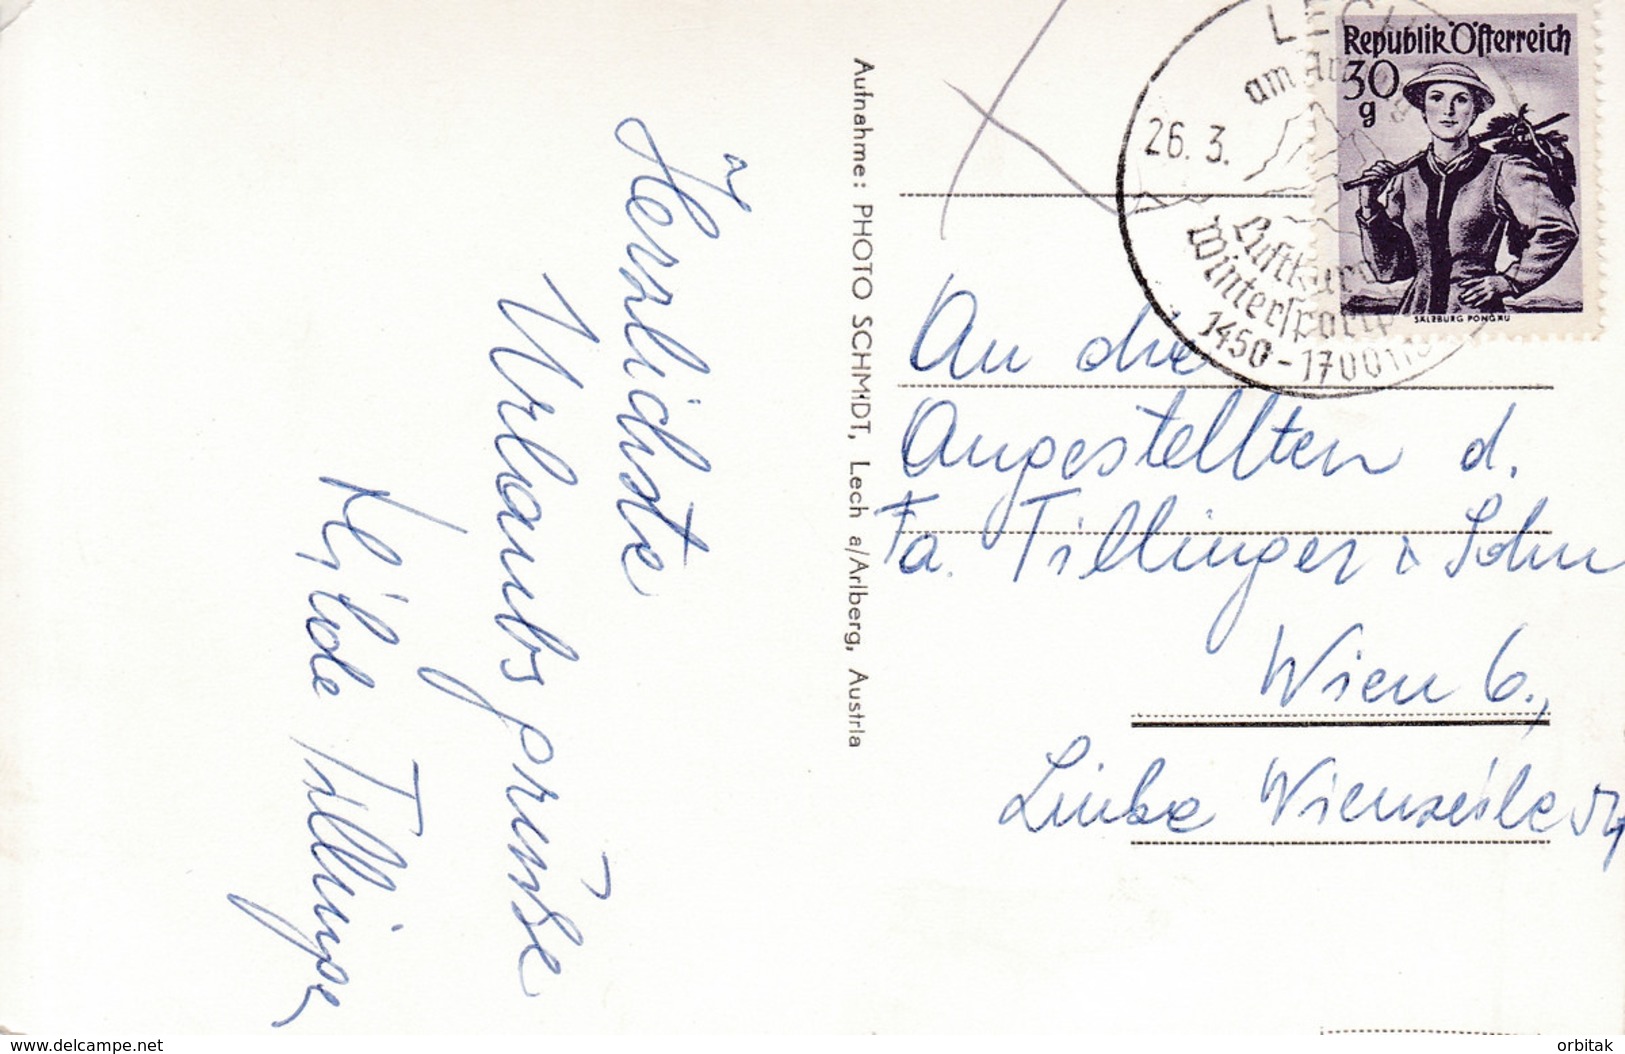 Herzlichste
Urlaubsgrüße
Hilde Tillinger
Aufnahme: PHOTO SCHMIDT, Lech a/Arlberg, Austria
LECH
am
26. 3.
Luftkur
Wintersport
1450-1700m
Republik Österreich
30
g
SALZBURG PONGAU
An die
Angestellten d.
Fa. Tillinger & Sohn
Wien 6.,
Linke Wienzeile
www.delcampe.net
orbitak